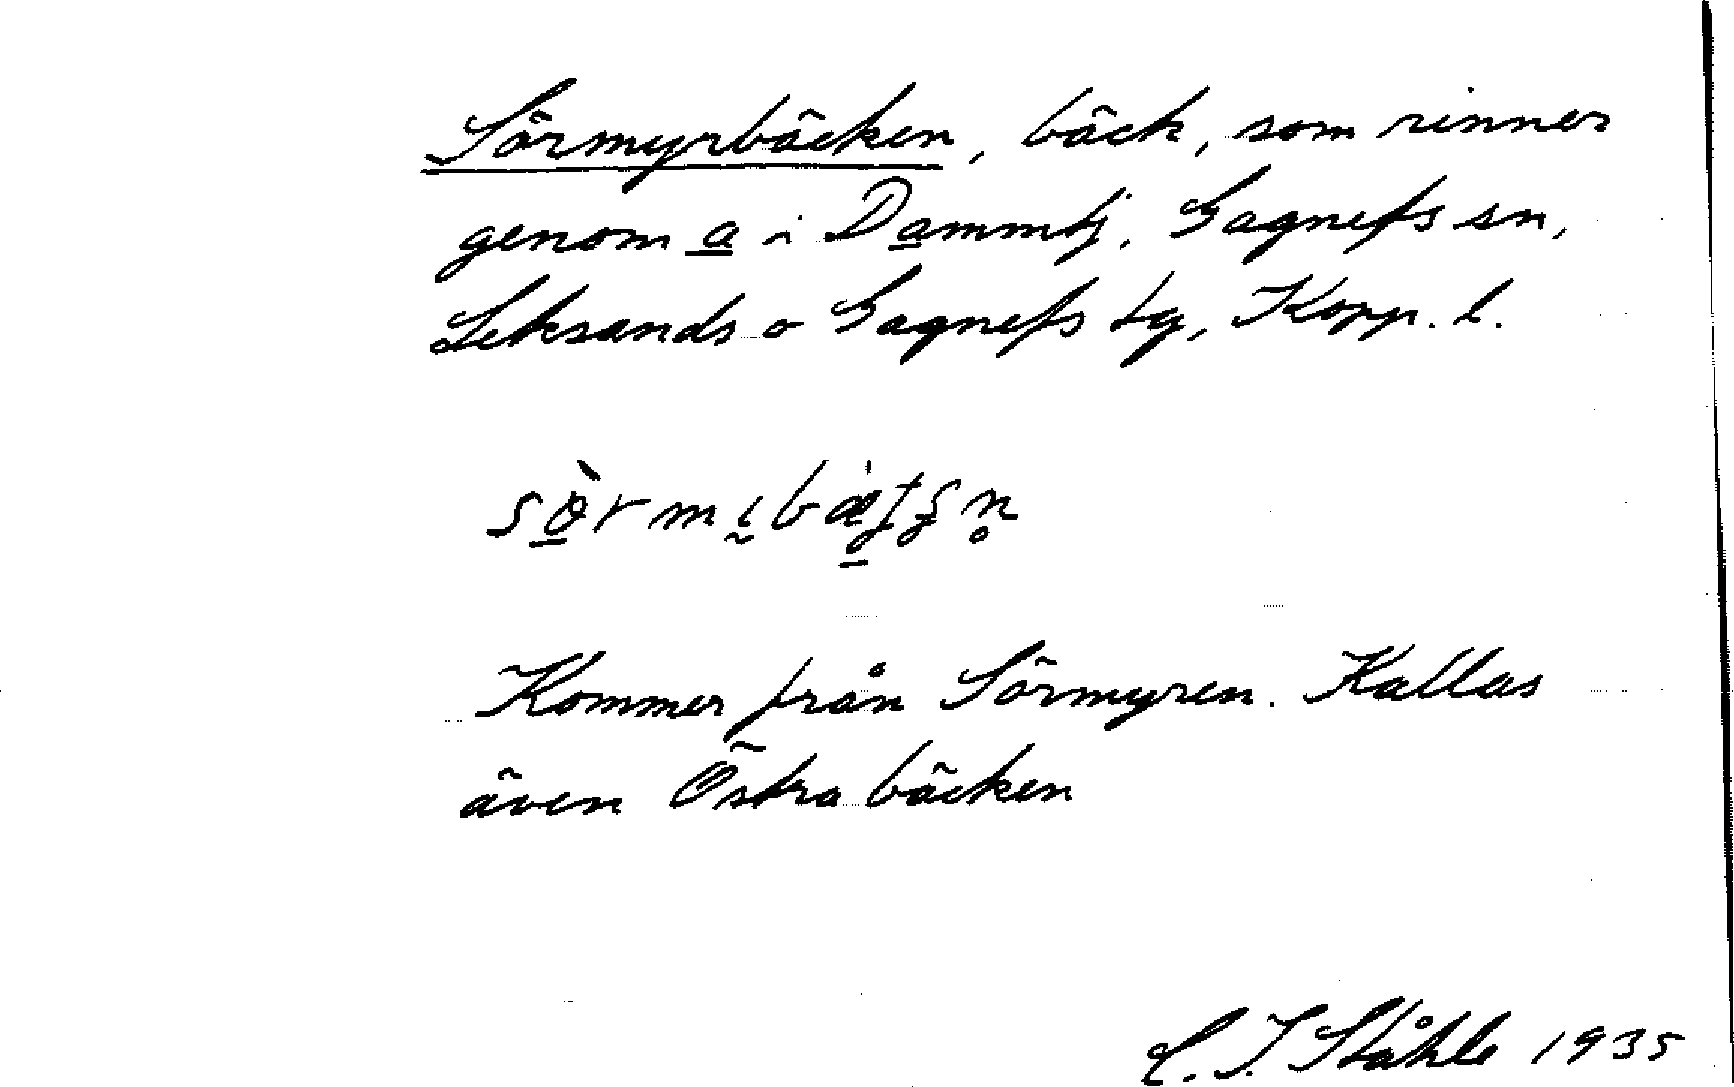 Sörmyrbäcken, bäck, som rinner
genom a i Dammtj, Gagnefs sn,
Leksands o Gagnefs tg, Kopp. l.
Kommer från Sörmyren. Kallas
även Östra bäcken
C. I. Ståhle 1935